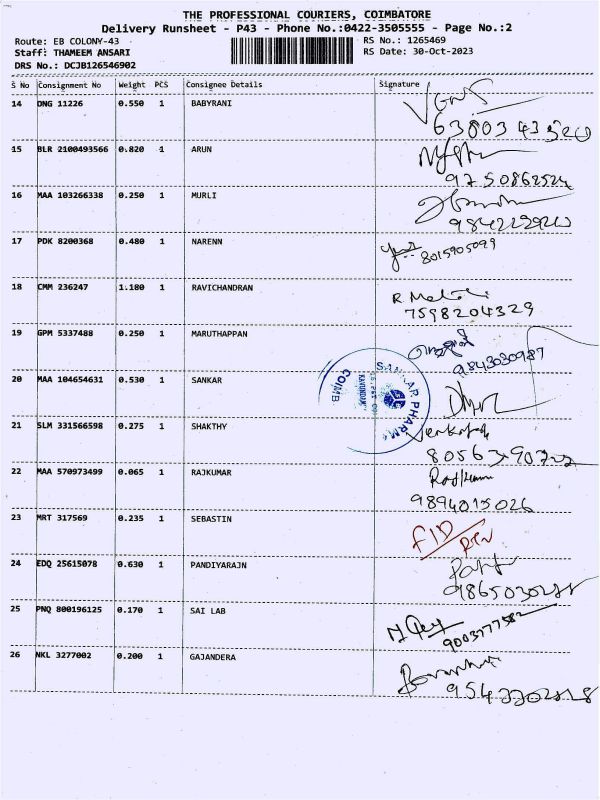 THE PROFESSIONAL COURIERS, COIMBATORE
Delivery Runsheet - P43 - Phone No.:0422-3505555 - Page No.:2
Route: EB COLONY-43 RS No.: 1265469
Staff: THAMEEM ANSARI RS Date: 30-Oct-2023
DRS No.: DCJB126546902
S No Consignment No Weight PCS Consignee Details Signature
14 DNG 11226 0.550 1 BABYRANI
15 BLR 2100493566 0.820 1 ARUN
9750862524
16 MAA 103266338 0.250 1 MURLI
17 PDK 8200368 0.480 1 NARENN
8015905099
18 CMM 236247 1.180 1 RAVICHANDRAN
7598204329
19 GPM 5337488 0.250 1 MARUTHAPPAN
9843030987
20 MAA 104654631 0.530 1 SANKAR
SANKAR PHARM
COIMB
21 SLM 331566598 0.275 1 SHAKTHY
22 MAA 570973499 0.065 1 RAJKUMAR
9894015026
23 MRT 317569 0.235 1 SEBASTIN
24 EDQ 25615078 0.630 1 PANDIYARAJN
25 PNQ 800196125 0.170 1 SAI LAB
9003777582
26 NKL 3277002 0.200 1 GAJANDERA